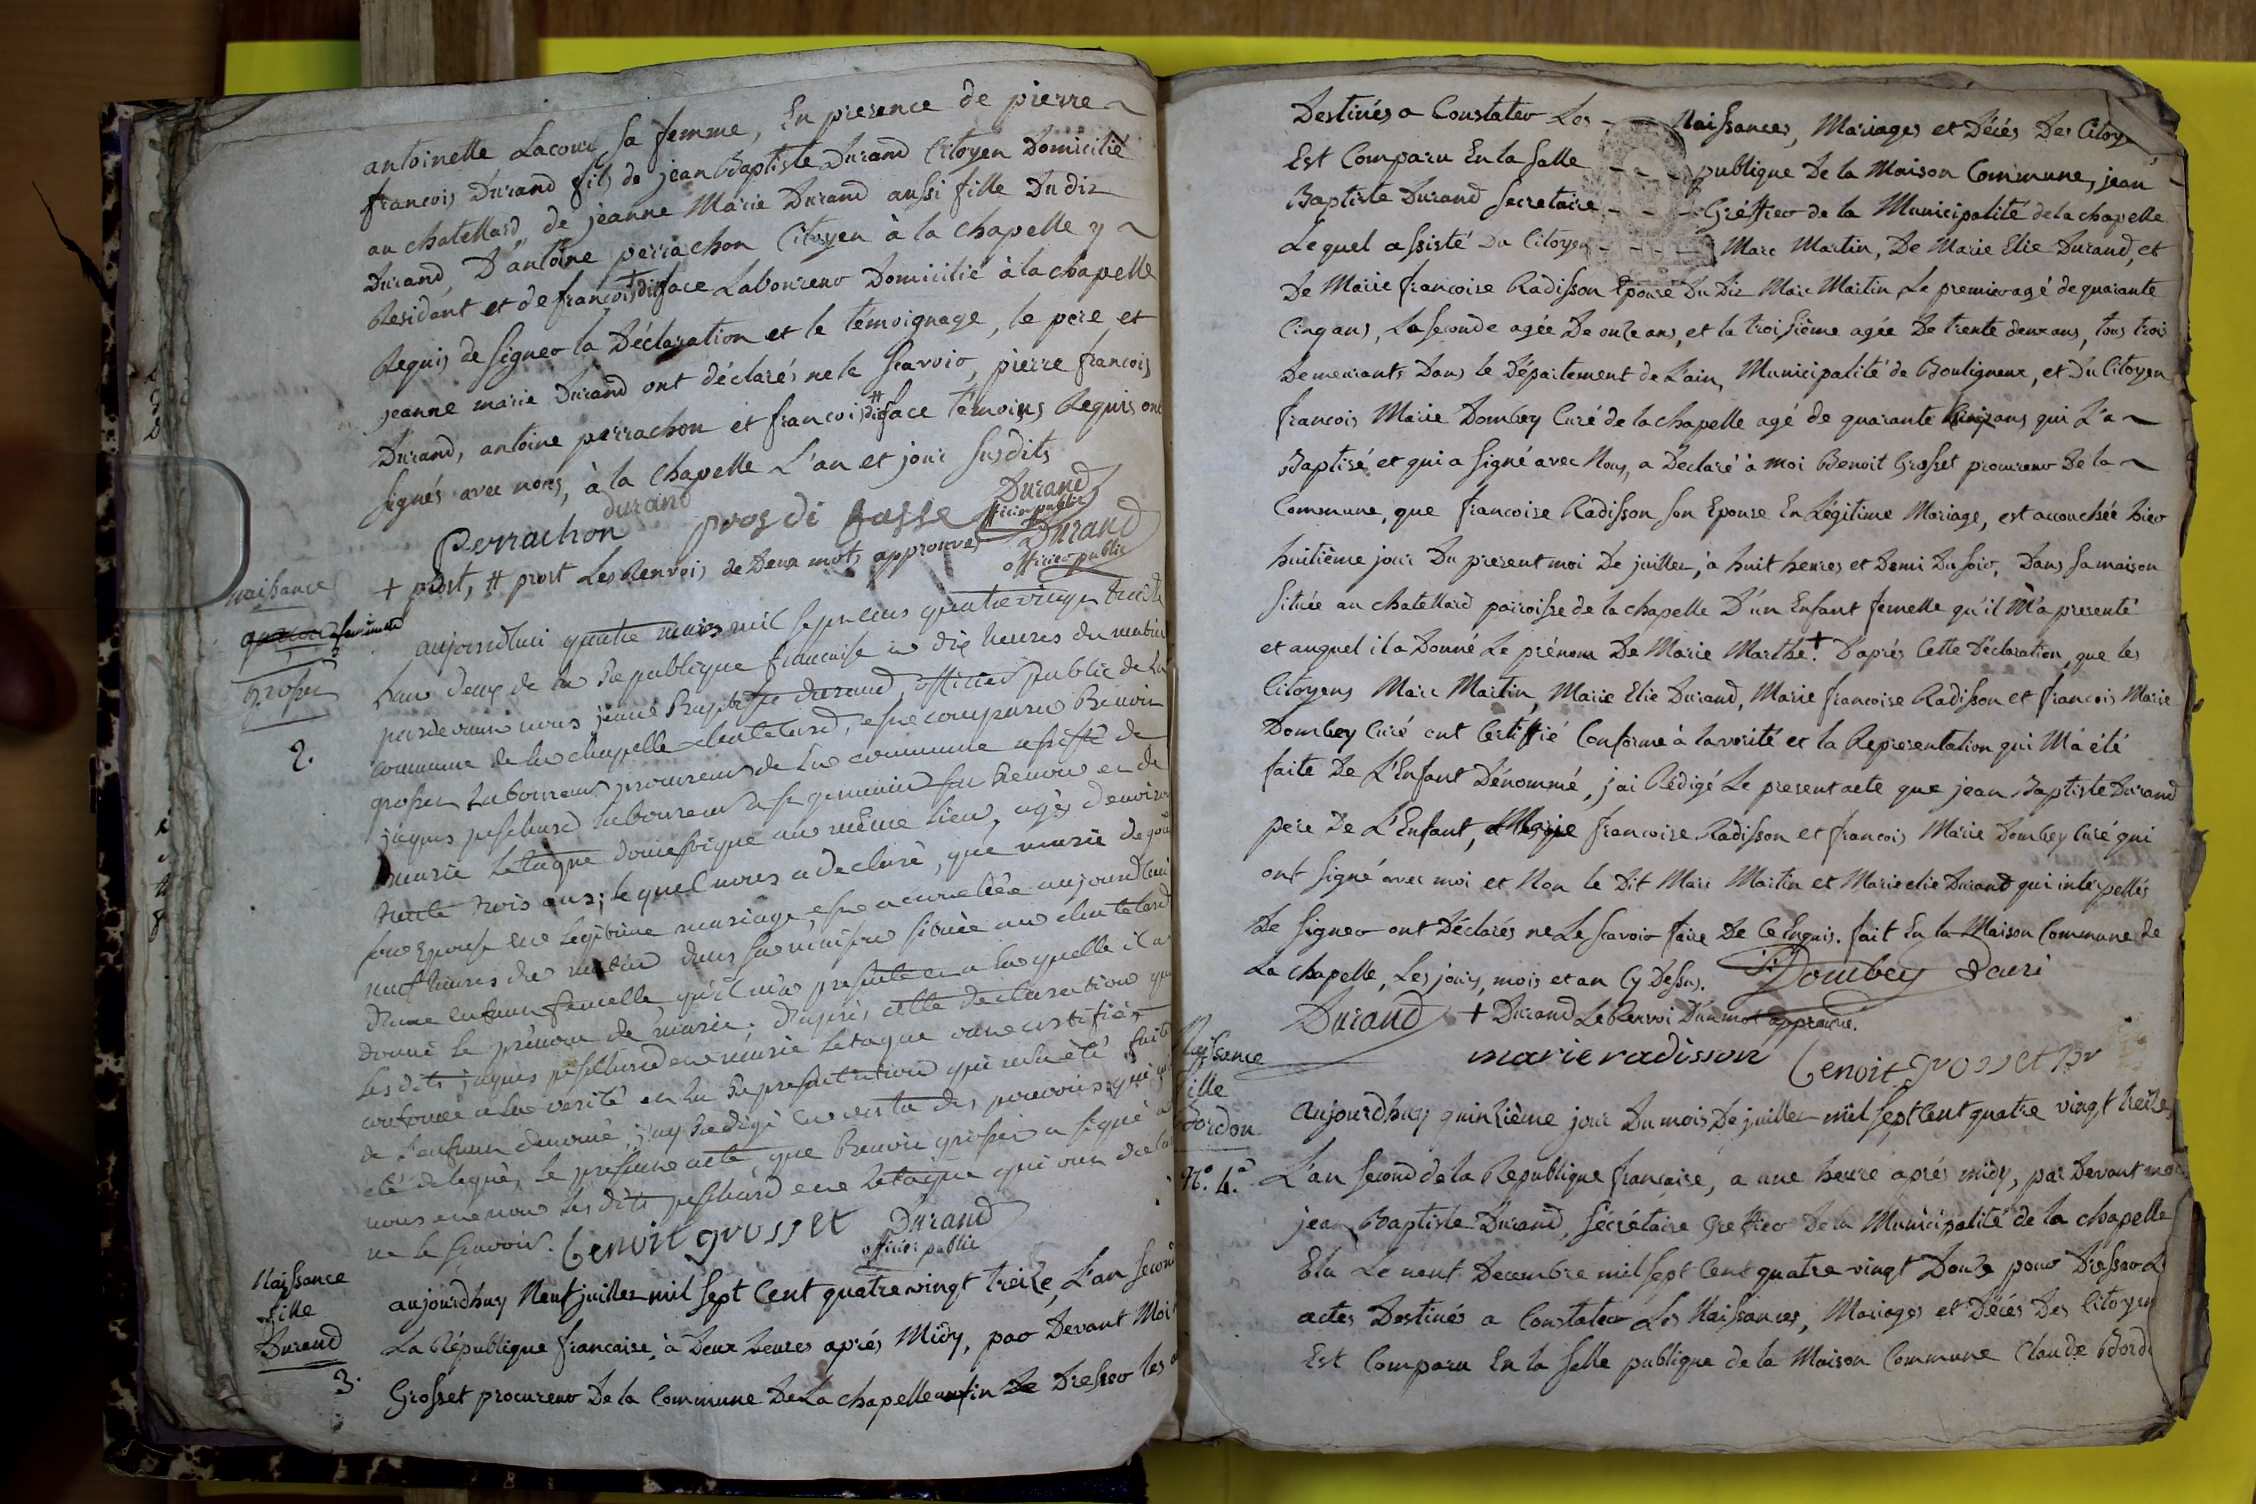 antoinette Lacour sa femme, En presence de pierre
francois Durand fils de jean Baptiste Durand Citoyen Domicilié
au chatellard, de jeanne Marie Durand aussi fille Du dit
Durand, D'antoine perrachon Citoyen à la chapelle y
Residant et de francois + dit face Laboureur Domicilié à la chapelle
Requis de signer la Déclaration et le témoignage, le pere et
jeanne marie Durand ont déclarés ne le scavoir, pierre francois
Durand, antoine perrachon et francois # dit face témoins Requis ont
signés avec nous, à la chapelle L'an et jour susdits
durand Durand
Perrachon pros di fasse officier public
Durand
+ prost, # prost Les Renvois de Deux mots approuvés officier public
naissance
grosset
2.
aujourdhui quatre mars mil sept cens quatre vingt treize
l'an deux de la Republique francaise à dix heures du matin
pardevant nous jean Baptiste durand, officier public de la
commune de la chapelle chatelard, est comparu Benoit
grosset laboureur procureur de la commune assisté de
jaques peschard laboureur et de
marie Letaque domestique au même lieu, agés d'environ
trente trois ans; lequel nous a declaré, que marie
son Epouse en legitime mariage, est accouchée aujourdhui
neuf heures du matin dans sa maison située au chatelard
d'une enfant femelle qu'il m'a presenté et a laquelle il a
donné le prénom de marie. d'après cette declaration que
les dits jaques peschard et marie Letaque ont certifiés
conforme a la verité et la Representation qui m'a été faite
de l'enfant denomé, j'ay Redigé en vertu des pouvoirs qui
été delegués, le present acte, que Benoit grosset a signé
nous et non les dits peschard et Letaque qui ont
ne le scavoir. Benoit grosset Durand
officier public
Naissance
fille
Durand
3.
aujourdhuy Neuf juillet mil sept Cent quatre vingt treize, L'an second
La République francaise, à Deux heures après Midy, par Devant Moi
Grosset procureur De la Commune De La chapelle Dresser les
Destinés a Constater Les Naissances, Mariages et Décés Des Citoy
Est Comparu En la salle publique De la Maison Commune, jean
Baptiste Durand Secretaire Gréffier de la Municipalité de la chapelle
Lequel assisté Du Citoyen Marc Martin, De Marie Elie Durand, et
De Marie francoise Radisson Epouse Du Dit Marc Martin, Le premier agé de quarante
Cinq ans, La seconde agée De onze ans, et la troisième agée De trente deux ans, tous trois
Demeurants Dans le Département de L'ain, Municipalité de Bouligneux, et Du Citoyen
francois Marie Dombey Curé de la chapelle agé de quarante Cinq ans qui L'a
Baptisé et qui a signé avec Nous, a Declaré à moi Benoit Grosset procureur De la
Commune, que francoise Radisson son Epouse En Légitime Mariage, est accouchée hier
huitième jour Du present moi De juillet, à huit heures et Demi Du soir, Dans sa maison
située au chatellard paroisse de la chapelle D'un Enfant femelle qu'il M'a presenté
et auquel il a Donné Le prénom De Marie Marthe +. D'après Cette Déclaration, que les
Citoyens Marc Martin, Marie Elie Durand, Marie francoise Radisson et francois Marie
Dombey Curé ont Certiffié Conforme à la verité et la Representation qui M'a été
faite De L'Enfant Dénommé, j'ai Rédigé Le present acte que jean Baptiste Durand
pere De L'Enfant, Marie francoise Radisson et francois Marie Dombey Curé qui
ont signé avec moi et Non le Dit Marc Martin et Marie elie Durand qui interpellés
De signer ont Déclarés ne Le scavoir faire De Ce Enquis. fait En la Maison Commune de
La chapelle, Les jour, mois et an Cy Dessus. Dombey Curé
Durand + Durand Le Renvoi D'un mot approuvé.
marie radisson Benoit grosset pr
Naissance
fille
Bordon
N°. 4.e
aujourdhuy quinzième jour Du mois De juillet mil sept Cent quatre vingt treize,
L'an second de la République francaise, a une heure après midy, par Devant moi
jean Baptiste Durand, Sécrétaire Greffier De la Municipalité de la chapelle
Elu Le neuf Decembre mil sept Cent quatre vingt Douze pour Dresser L
actes Destinés a Constater Les Naissances, Mariages et Décés Des Citoyen
Est Comparu En la salle publique de la Maison Commune Claude Bord